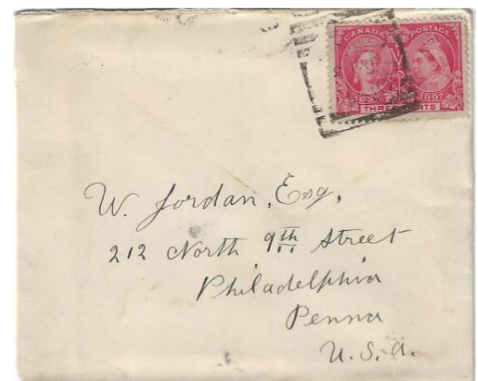 CANADA POSTAGE
1837 1897
THREE CENTS
W. Jordan, Esq,
212 North 9th Street
Philadelphia
Penna
U.S.A.